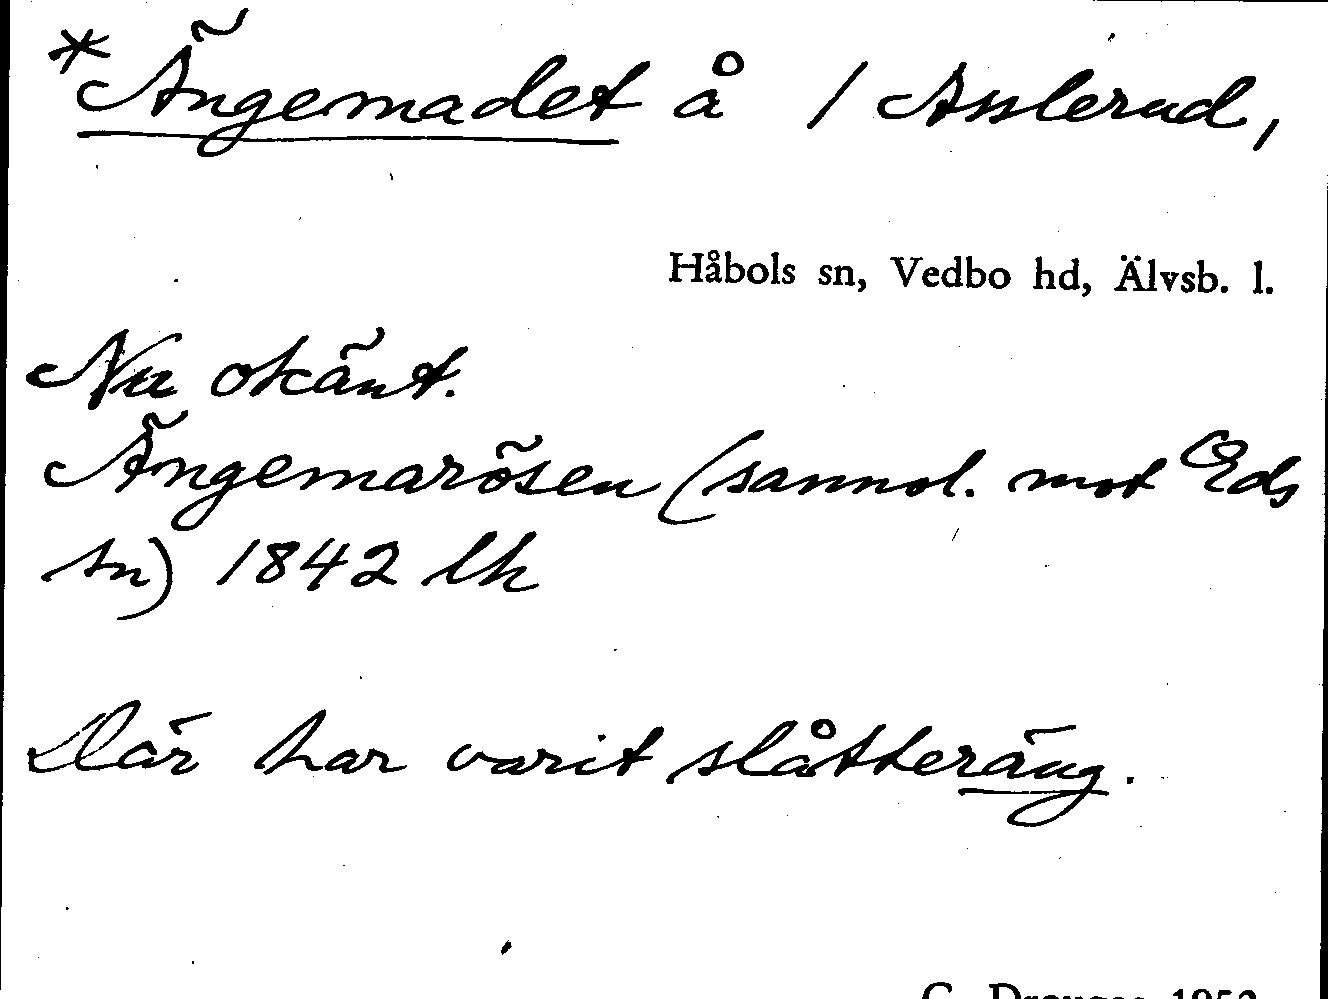 *Ängemadet å 1 Asslerud,
Håbols sn, Vedbo hd, Älvsb. l.
Nu okänt.
Ängemarösen (sannol. mot Eds
sn) 1842 lh
Där har varit slåtteräng.